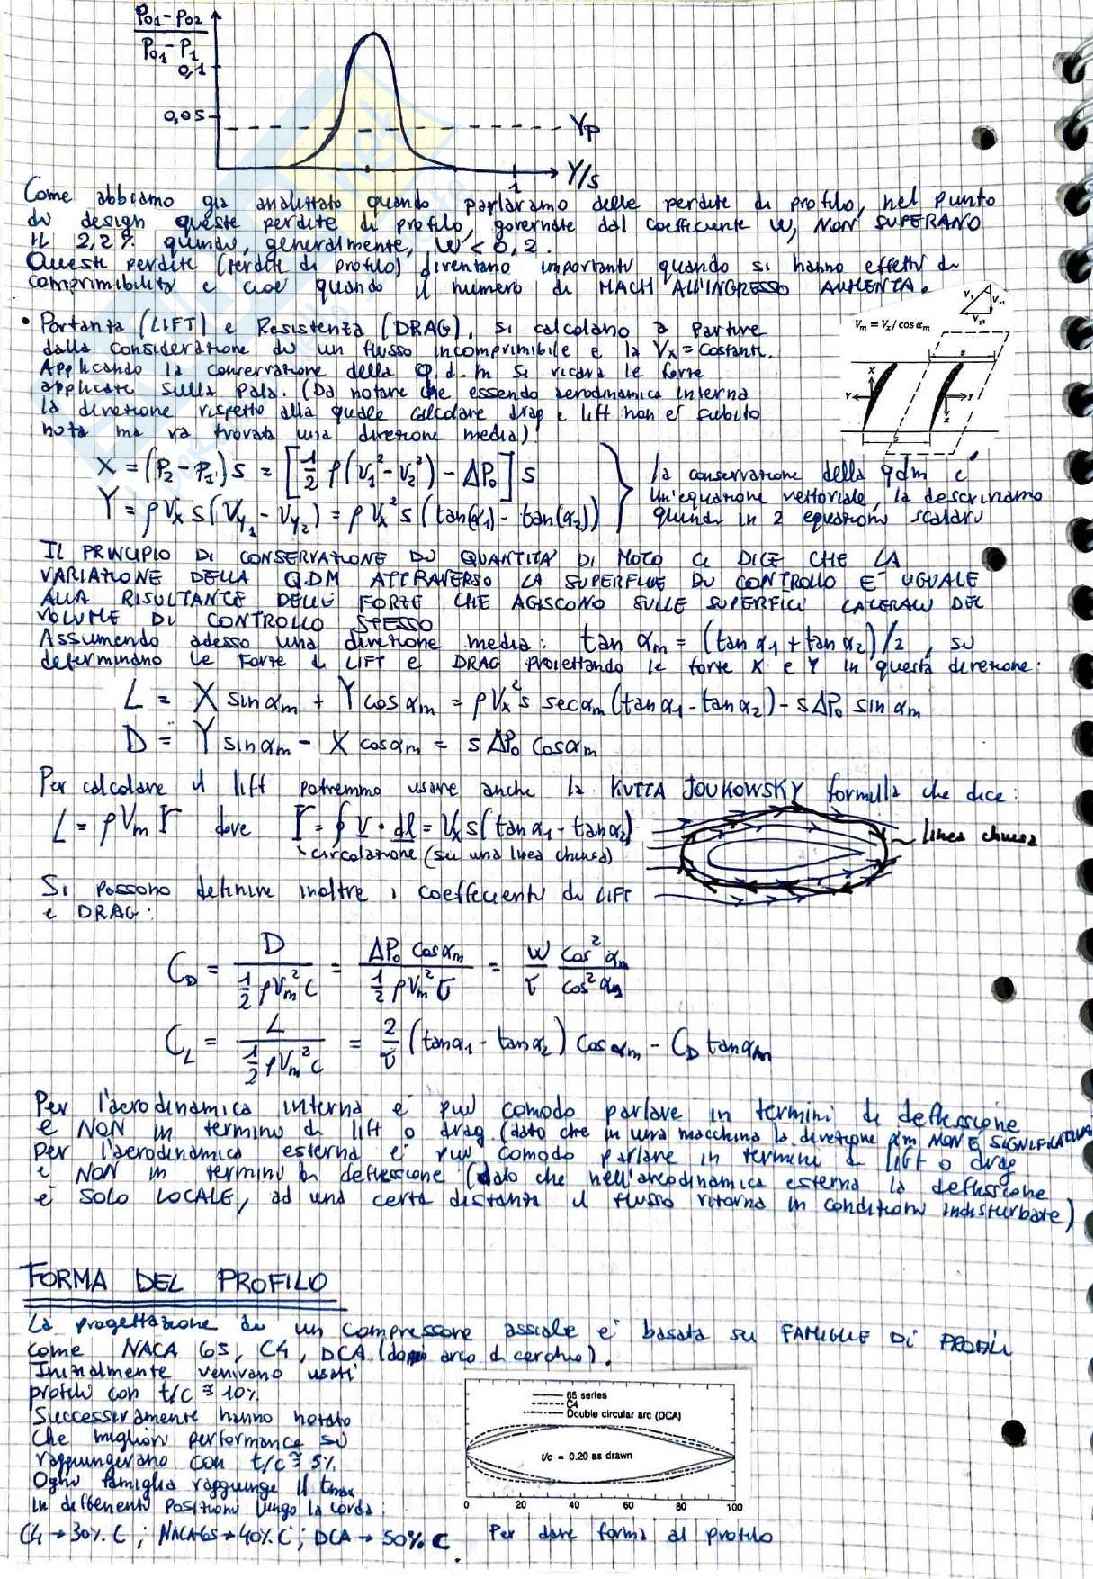 P01-P02
P01-P1
0,1
0,05
Yp
Y/s
1
Come abbiamo già analizzato quando parlavamo delle perdite di profilo, nel punto
di design queste perdite di profilo, governate dal coefficiente W, NON SUPERANO
IL 2,2% quindi, generalmente, W < 0,2.
Queste perdite (perdite di profilo) diventano importanti quando si hanno effetti di
comprimibilità e cioè quando il numero di MACH ALL'INGRESSO AUMENTA.
• Portanza (LIFT) e Resistenza (DRAG), si calcolano a partire
dalla considerazione di un flusso incomprimibile e la Vx = costante.
Applicando la conservazione della q.d.m si ricava le forze
applicate sulla pala. (Da notare che essendo aerodinamica interna
la direzione rispetto alla quale calcolare drag e lift non è subito
nota ma va trovata una direzione media)!
Vm = Vx/ cos αm
X = (P2 - P1) s = [1/2 ρ(V1² - V2²) - ΔP0] s
Y = ρVx s (Vy1 - Vy2) = ρVx² s (tan(α1) - tan(α2))
la conservazione della qdm è
un'equazione vettoriale, la descriviamo
quindi in 2 equazioni scalari
IL PRINCIPIO DI CONSERVAZIONE DI QUANTITÀ DI MOTO CI DICE CHE LA
VARIAZIONE DELLA QDM ATTRAVERSO LA SUPERFICIE DI CONTROLLO È UGUALE
ALLA RISULTANTE DELLE FORZE CHE AGISCONO SULLE SUPERFICI LATERALI DEL
VOLUME DI CONTROLLO STESSO
Assumendo adesso una direzione media: tan αm = (tan α1 + tan α2)/2, si
determinano le forze di LIFT e DRAG proiettando le forze X e Y in questa direzione:
L = X sin αm + Y cos αm = ρVx² s sec αm (tan α1 - tan α2) - s ΔP0 sin αm
D = Y sin αm - X cos αm = s ΔP0 cos αm
Per calcolare il lift potremmo usare anche la KUTTA JOUKOWSKY formula che dice:
L = ρ Vm Γ dove Γ = ∮ V · dl = Vx s (tan α1 - tan α2)
circolazione (su una linea chiusa)
linea chiusa
Si possono definire inoltre i coefficienti di LIFT
e DRAG:
CD = D / (1/2 ρVm² C) = ΔP0 cos αm / (1/2 ρVm² σ) = W/σ cos² αm / cos² α1
CL = L / (1/2 ρVm² C) = 2/σ (tan α1 - tan α2) cos αm - CD tan αm
Per l'aerodinamica interna è più comodo parlare in termini di deflessione
e NON in termini di lift o drag (dato che in una macchina la direzione αm NON È SIGNIFICATIVA)
Per l'aerodinamica esterna è più comodo parlare in termini di lift o drag
e NON in termini di deflessione (dato che nell'aerodinamica esterna la deflessione
è SOLO LOCALE, ad una certa distanza il flusso ritorna in condizioni indisturbate)
FORMA DEL PROFILO
La progettazione di un compressore assiale è basata su FAMIGLIE DI PROFILI
come NACA 65, C4, DCA (doppio arco di cerchio).
Inizialmente venivano usati
profili con t/c ≅ 10%
Successivamente hanno notato
che migliori performance si
raggiungevano con t/c ≅ 5%
Ogni famiglia raggiunge il tmax
in differenti posizioni lungo la corda:
C4 → 30% C ; NACA65 → 40% C ; DCA → 50% C.
65 series
C4
Double circular arc (DCA)
t/c = 0.20 as drawn
0 20 40 60 80 100
Per dare forma al profilo